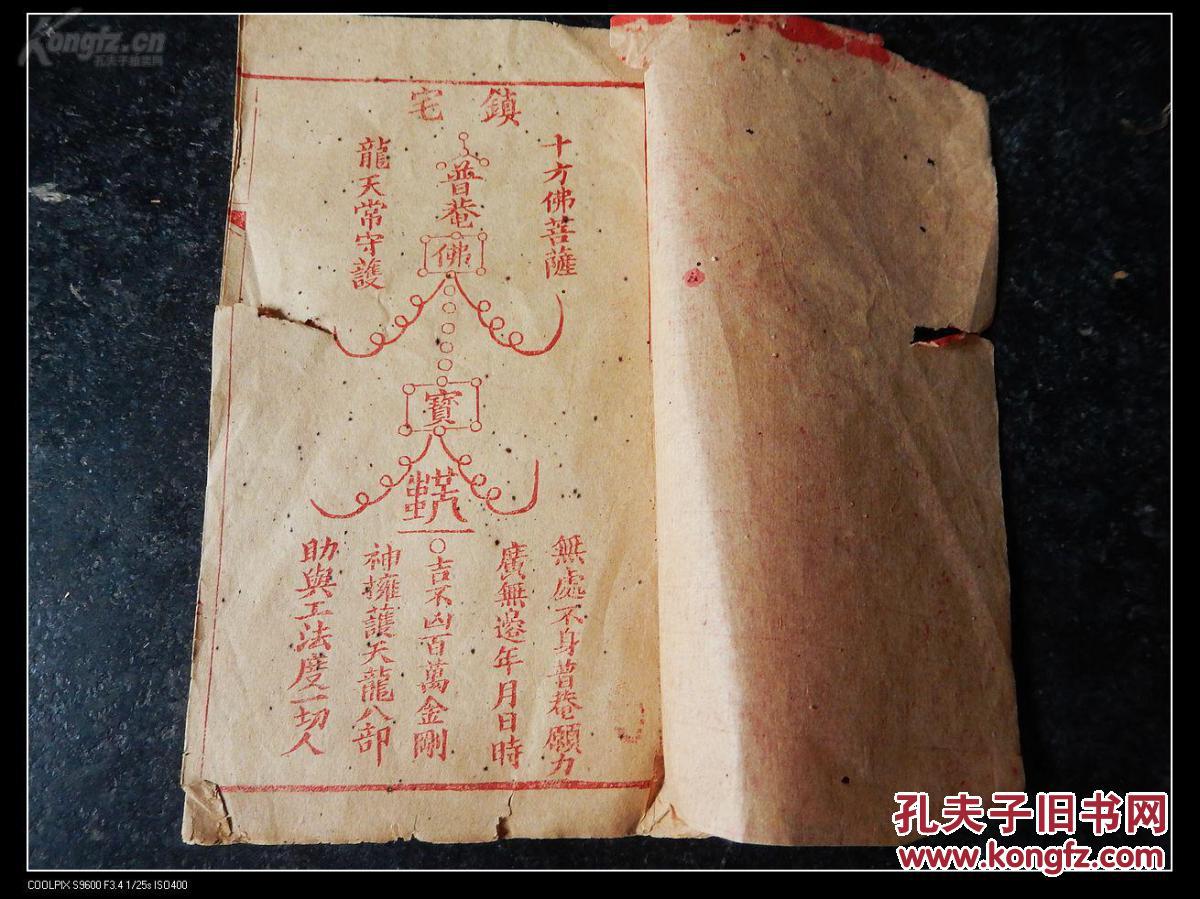 Kongfz.cn
孔夫子旧书网
鎮宅
十方佛菩薩
普菴
佛
寶
龍天常守護
無處不身普菴願力
廣無邊年月日時
吉不凶百萬金剛
神擁護天龍八部
助與工法度一切人
孔夫子旧书网
www.kongfz.com
COOLPIX S9600 F3.4 1/25s ISO400